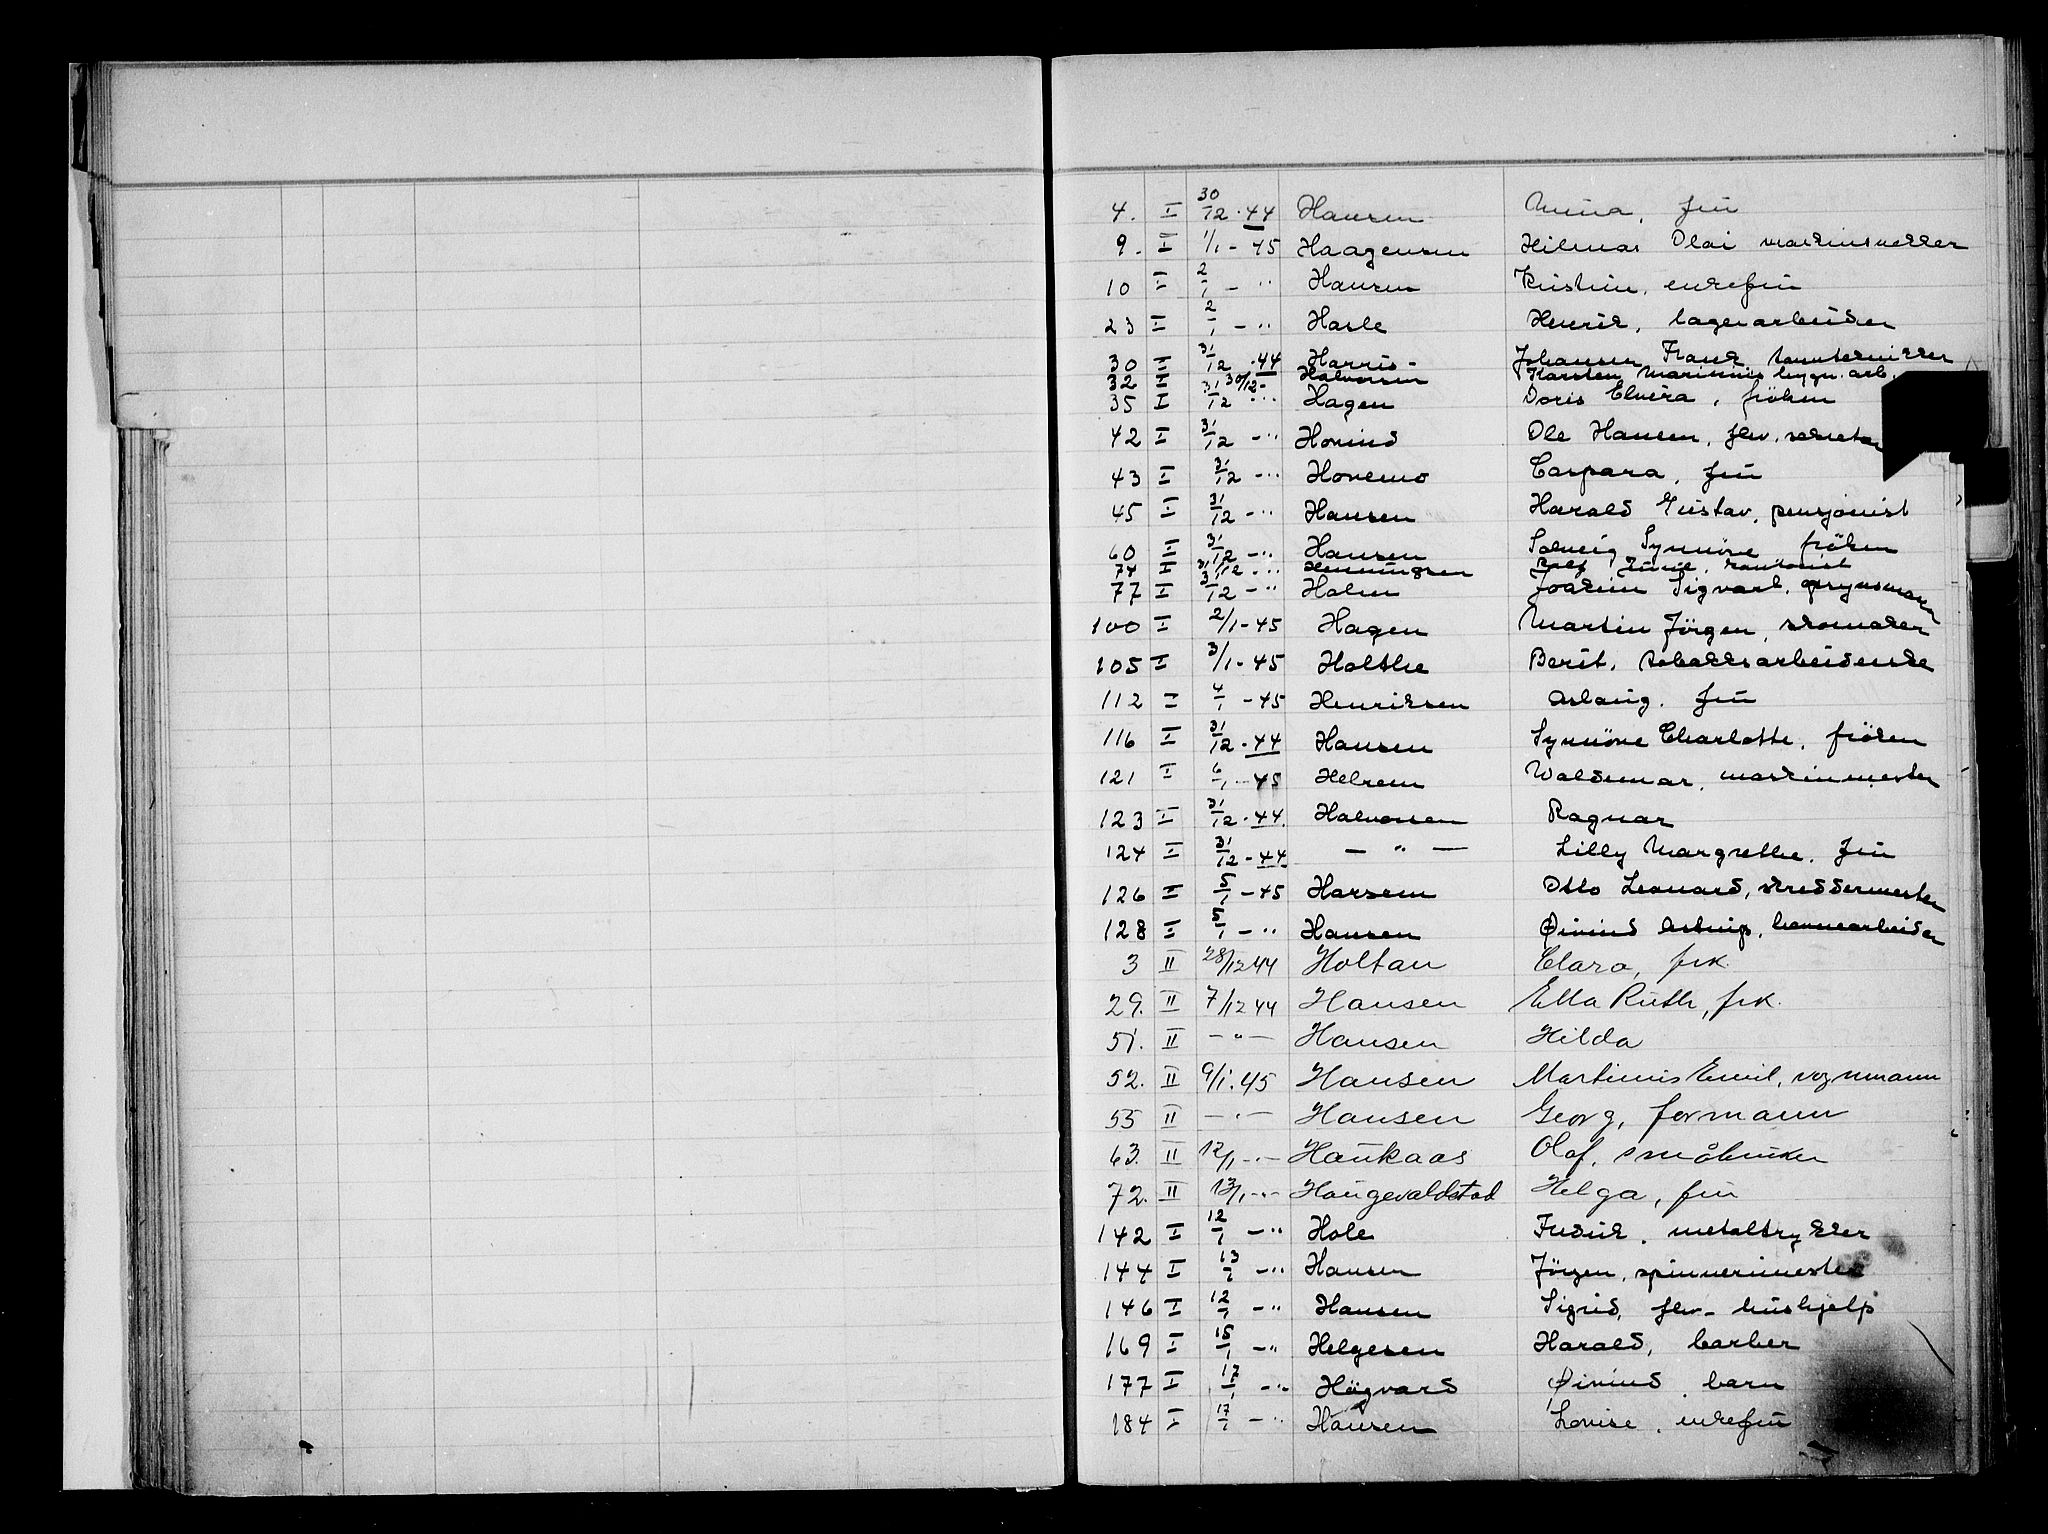 4. I 30/12 · 44 Hansen Anna, fru
9. I 1/1 - 45 Haagensen Hilmar Olai
10 I 2/1 - " Hansen Kristine, enkefru
23 I 2/1 - " Hasle Henrik, lagerarbeider
30 I 31/12 · 44 Harris- Johansen, Frank tanntekniker
32 I 30/12 - Halvorsen Karsten Marinius bygn. arb.
35 I 31/12 " Hagen Doris Elvira, fröken
42 I 31/12 - " Hovind Ole Hansen, fhv. sekretær
43 I 31/12 - " Hovemo Caspara, fru
45 I 31/12 - " Hansen Harald Gustav, pensjonist
60 I 31/12 - " Hansen Solveig Synnöve fröken
74 I 31/12 - " Henningsen Rolf Emil, kontorist
77 I 31/12 - " Holm Joakim Sigvart, opsynsmann
100 I 2/1 - 45 Hagen Martin Jörgen, skomaker
105 I 3/1 - 45 Holthe Berit, tobakksarbeiderske
112 I 4/1 - 45 Henriksen Aslaug. fru
116 I 31/12 · 44 Hansen Synnöve Charlotte, fröken
121 I 6/1 - 45 Helrem Waldemar, maskinmester
123 I 31/12 · 44 Halvorsen Ragnar
124 I 31/12 - 44 — " — Lilly Margrethe. fru
126 I 5/1 - 45 Harsem Otto Leonard, skreddermester
128 I 5/1 - " Hansen Øivind Astrup, havnearbeider
3 II 28/12 44 Holtan Clara, frk.
29. II 7/12 44 Hansen Ella Ruth, frk.
51. II — " — Hansen Hilda
52. II 9/1. 45 Hansen Martinius Emil, vognmann
55 II — " — Hansen Georg, formann
63. II 12/1 - " - Haukaas Olaf, småbruker
72. II 13/1 - " - Haugevaldstad Helga, fru
142 I 12/1 - " Hole Fredrik, metaltrykker
144 I 13/1 - " Hansen Jörgen, spinnerimester
146 I 12/1 - " Hansen Sigrid, fhv - hushjelp
169 I 15/1 - " Helgesen Harald, barber
177 I 17/1 - " Högvard Øivind, barn
184 I 17/1 - " Hansen Lovise, enkefru